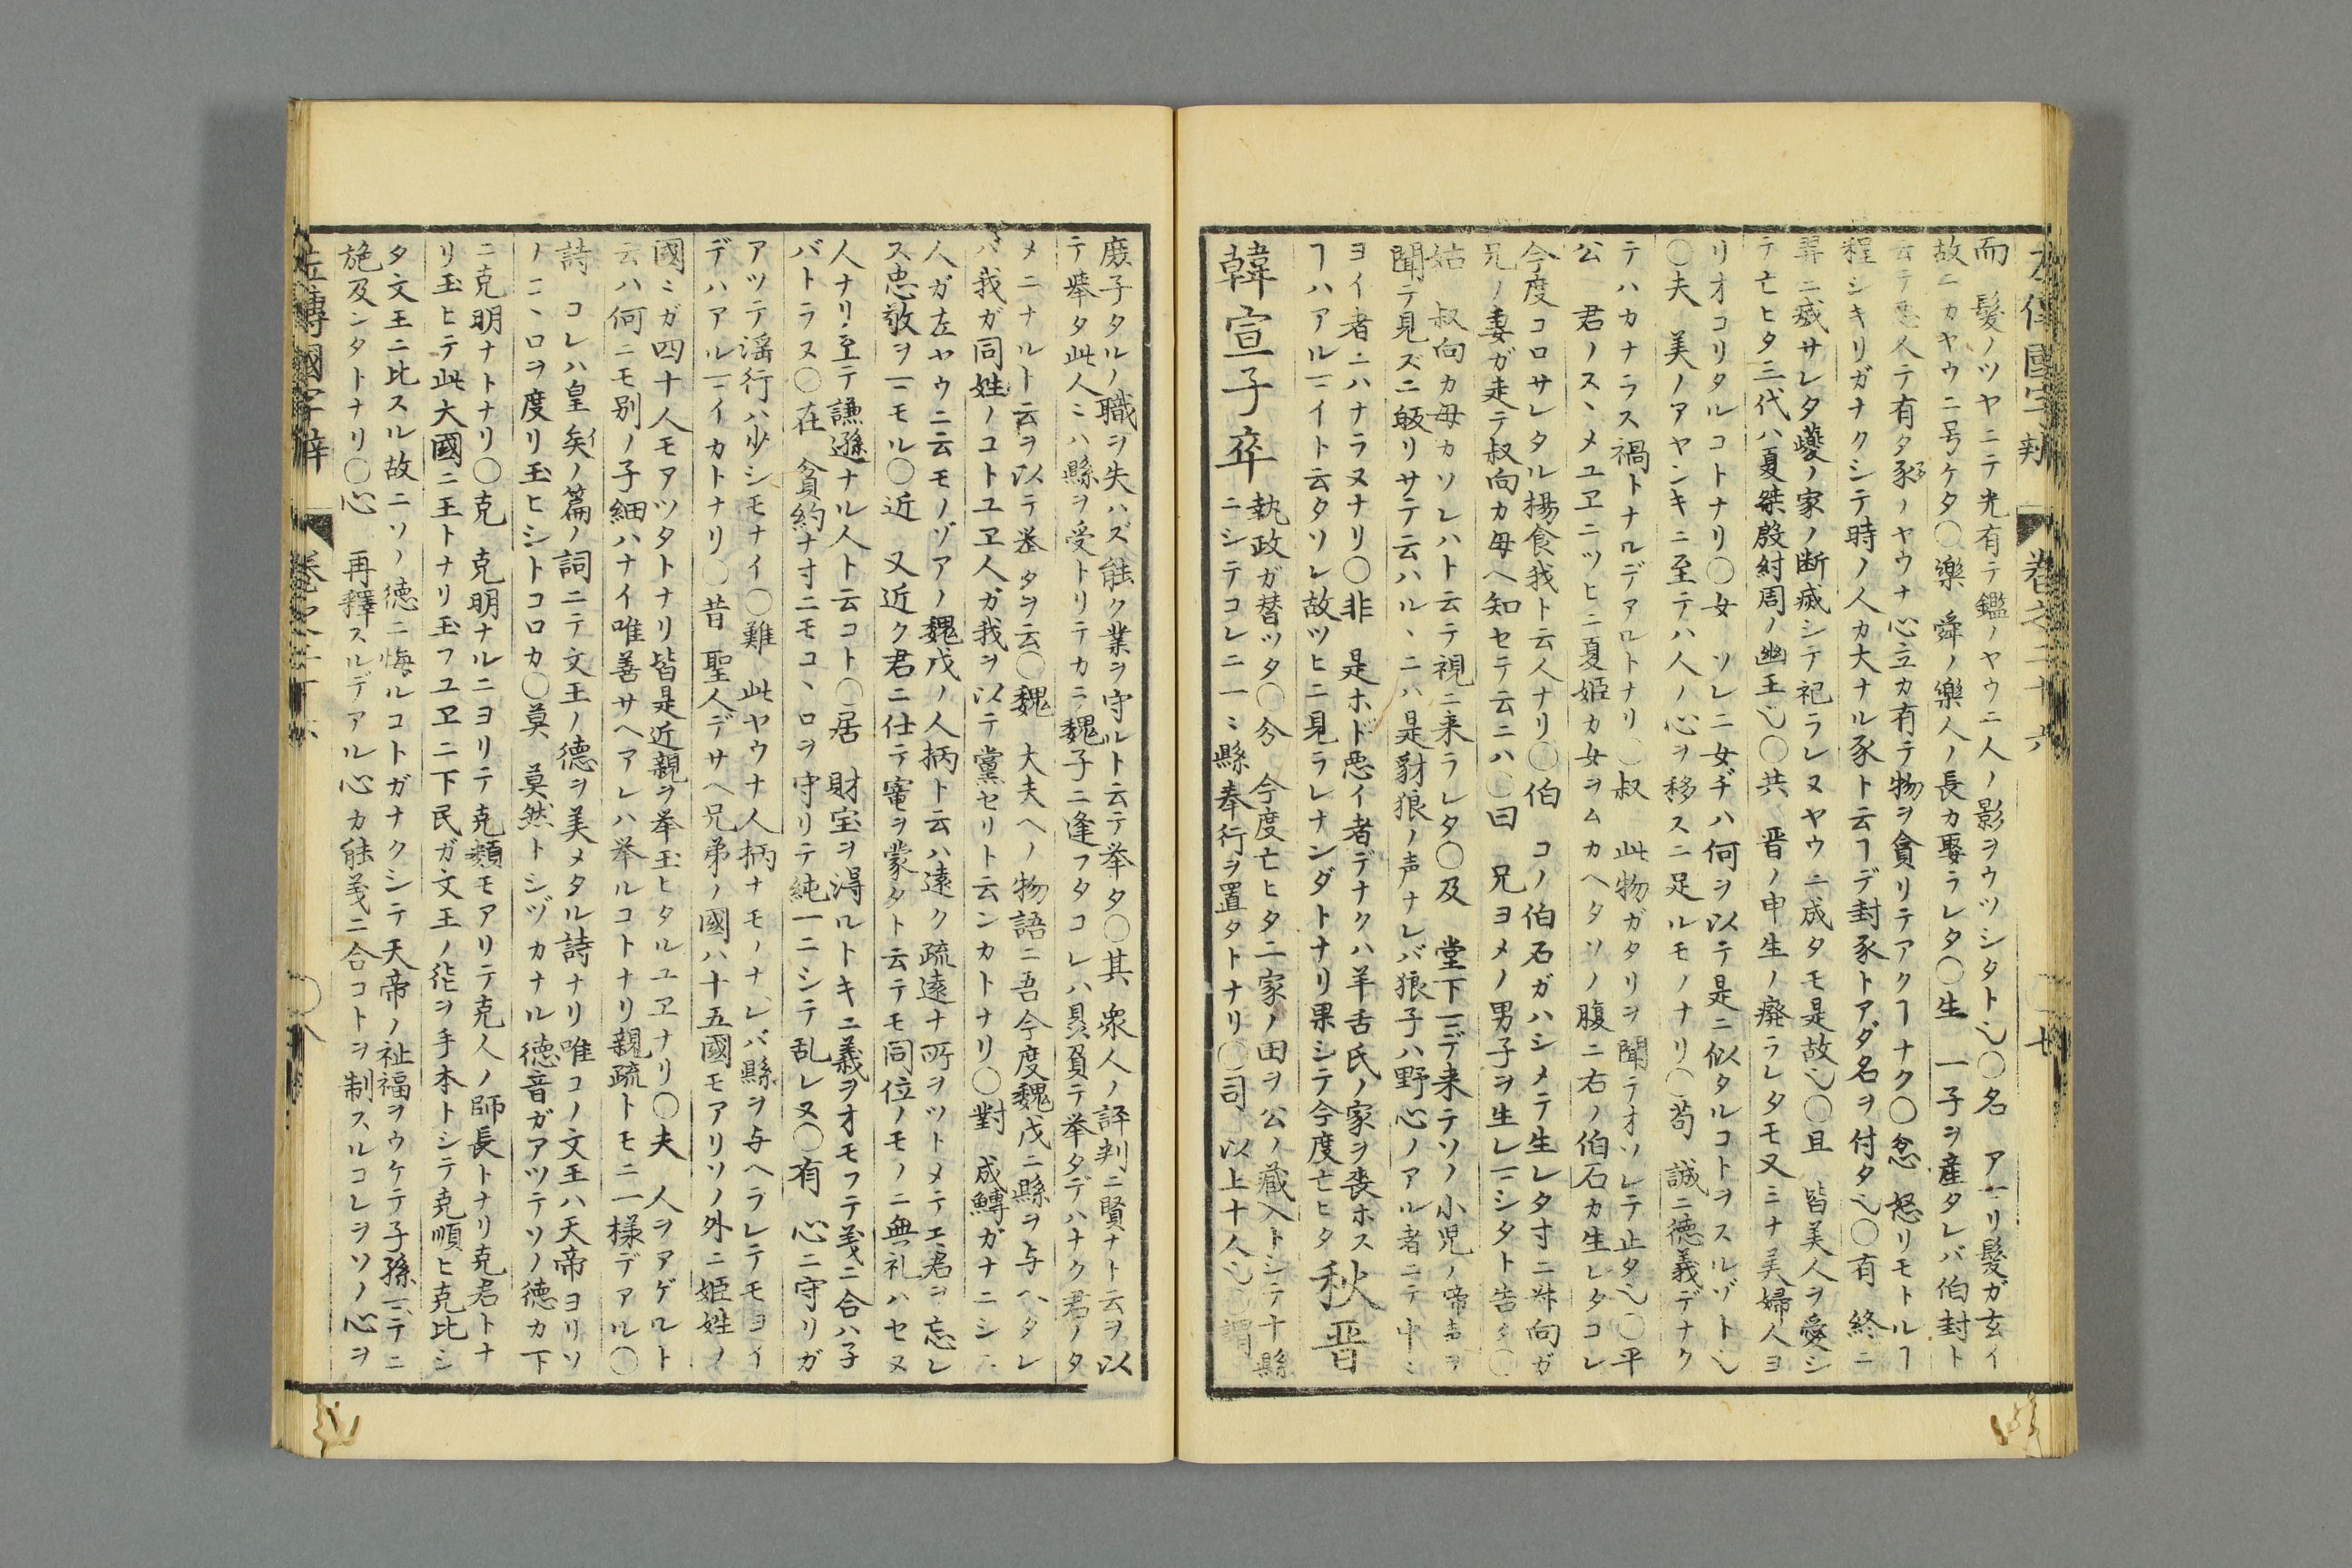 左傳國字辨 卷之二十六
而 髮ノツヤニテ光有テ鑑ノヤウニ人ノ影ヲウツシタト也〇名 アマリ髮ガ玄イ
故ニカヤウニ号ケタ〇樂 舜ノ樂人ノ長カ娶ラレタ〇生 一子ヲ産タレバ伯封ト
云テ悪人テ有タ豕ノヤウナ心立カ有テ物ヲ貪リテアクヿナク〇忿 怒リモトルヿ
程シキリガナクシテ時ノ人カ大ナル豕ト云ヿデ封豕トアダ名ヲ付タ也〇有 終ニ
羿ニ威サレタ夔ノ家ノ断威シテ祀ラレヌヤウニ成タモ是故也〇且 皆美人ヲ愛シ
テ亡ヒタ三代ハ夏桀殷紂周ノ幽王也〇共 晋ノ申生ノ廢ラレタモ又ミナ美婦人ヨ
リオコリタルコトナリ〇女 ソレニ女ヂハ何ヲ以テ是ニ似タルコトヲスルゾト也
〇夫 美ノアヤンキニ至テハ人ノ心ヲ移スニ足ルモノナリ〇苟 誠ニ徳義デナク
テハカナラス禍トナルデアロトナリ〇叔 此物ガタリヲ聞テオソレテ止タ也〇平
公 君ノスヽメユヱニツヒニ夏姫カ女ヲムカヘタソノ腹ニ右ノ伯石カ生レタコレ
今度コロサレタル揚食我ト云人ナリ〇伯 コノ伯石ガハシメテ生レタ寸ニ叔向ガ
兄ノ妻ガ走テ叔向カ母ヘ知セテ云ニハ〇曰 兄ヨメノ男子ヲ生レマシタト告タ〇
姑 叔向カ母カソレハト云テ視ニ来ラレタ〇及 堂下マデ来テソノ小児ノ啼声ヲ
聞テ見ズニ皈リサテ云ハルヽニハ是豺狼ノ声ナレバ狼子ハ野心ノアル者ニテ中ミ
ヨイ者ニハナラヌナリ〇非 是ホド悪イ者デナクハ羊舌氏ノ家ヲ喪ホス
ヿハアルマイト云タソレ故ツヒニ見ラレナンダトナリ果シテ今度亡ヒタ 秋晋
韓宣子卒 執政ガ替ツタ〇分 今度亡ヒタ二家ノ田ヲ公ノ蔵入トシテ十縣
ニシテコレニ一ミ縣奉行ヲ置タトナリ〇司 以上十人也〇謂
廢子タルノ職ヲ失ハズ能ク業ヲ守ルト云テ挙タ〇其 衆人ノ評判ニ賢ナト云ヲ以
テ挙タ此人ミハ縣ヲ受トリテカラ魏子ニ逢フタコレハ贔屓テ挙タデハナク君ノタ
メニナルト云ヲ以テ挙タヲ云〇魏 大夫ヘノ物語ニ吾今度魏戊ニ縣ヲ与ヘタレ
バ我ガ同姓ノコトユヱ人ガ我ヲ以テ黨セリト云ンカトナリ〇對 成鱄ガナニシニ
人ガ左ヤウニ云モノゾアノ魏戊ノ人柄ト云ハ遠ク疏遠ナ所ヲツトメテエ君ヲ忘レ
ス忠敬ヲマモル〇近 又近ク君ニ仕テ寵ヲ蒙タト云テモ同位ノモノニ無礼ハセヌ
人ナリ至テ謙遜ナル人ト云コト〇居 財宝ヲ得ルトキニ義ヲオモフテ義ニ合ハ子
バトラス〇在 貧約ナ寸ニモコヽロヲ守リテ純一ニシテ乱レヌ〇有 心ニ守リガ
アツテ淫行ハ少シモナイ〇難 此ヤウナ人柄ナモノナレバ縣ヲ与ヘラレテモヨイ
デハアルマイカトナリ〇昔 聖人デサヘ兄弟ノ國ハ十五國モアリソノ外ニ姫姓ノ
國ミガ四十人モアツタトナリ皆是近親ヲ挙玉ヒタルユヱナリ〇夫 人ヲアゲルト
云ハ何ニモ別ノ子細ハナイ唯善サヘアレハ挙ルコトナリ親疏トモニ一様デアル〇
詩 コレハ皇矣ノ篇ノ詞ニテ文王ノ德ヲ美メタル詩ナリ唯コノ文王ハ天帝ヨリソ
ノコヽロヲ度リ玉ヒシトコロカ〇莫 莫然トシヅカナル徳音ガアツテソノ徳カ下
ニ克明ナトナリ〇克 克明ナルニヨリテ克類モアリテ克人ノ師長トナリ克君トナ
リ玉ヒテ此大國ニ王トナリ玉フユヱニ下民ガ文王ノ徳ヲ手本トシテ克順ヒ克比シ
タ文王ニ比スル故ニソノ徳ニ悔ルコトガナクシテ天帝ノ祉福ヲウケテ子孫マデニ
施及ンタトナリ〇心 再釋スルデアル心カ能義ニ合コトヲ制スルコレヲソノ心ヲ
左傳國字辨 卷之二十六 〇八